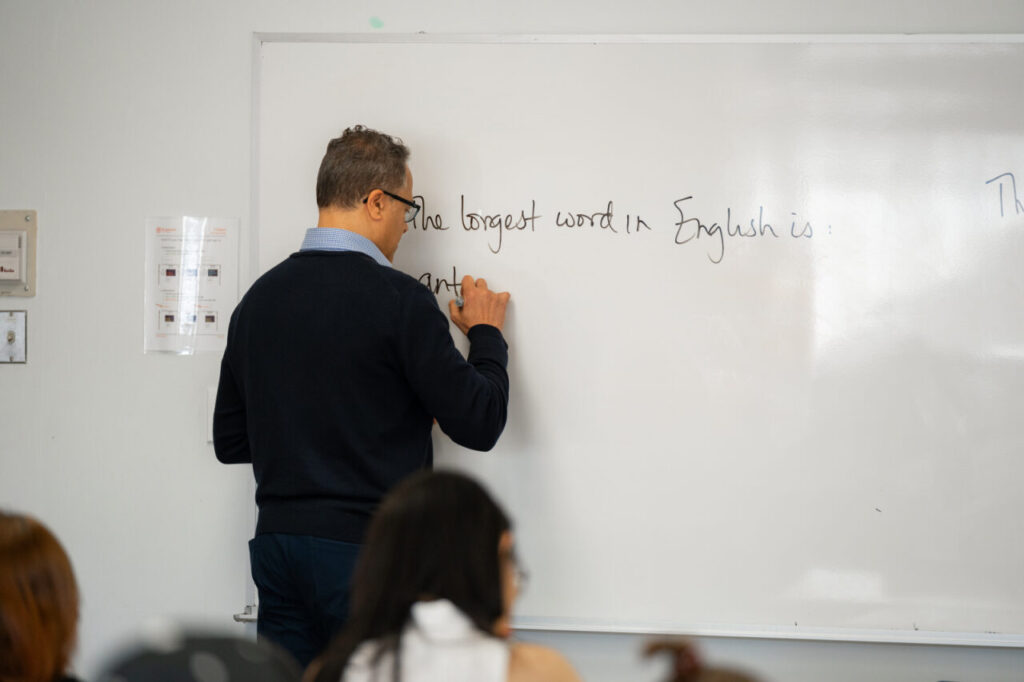 The longest word in English is:
ant
Th